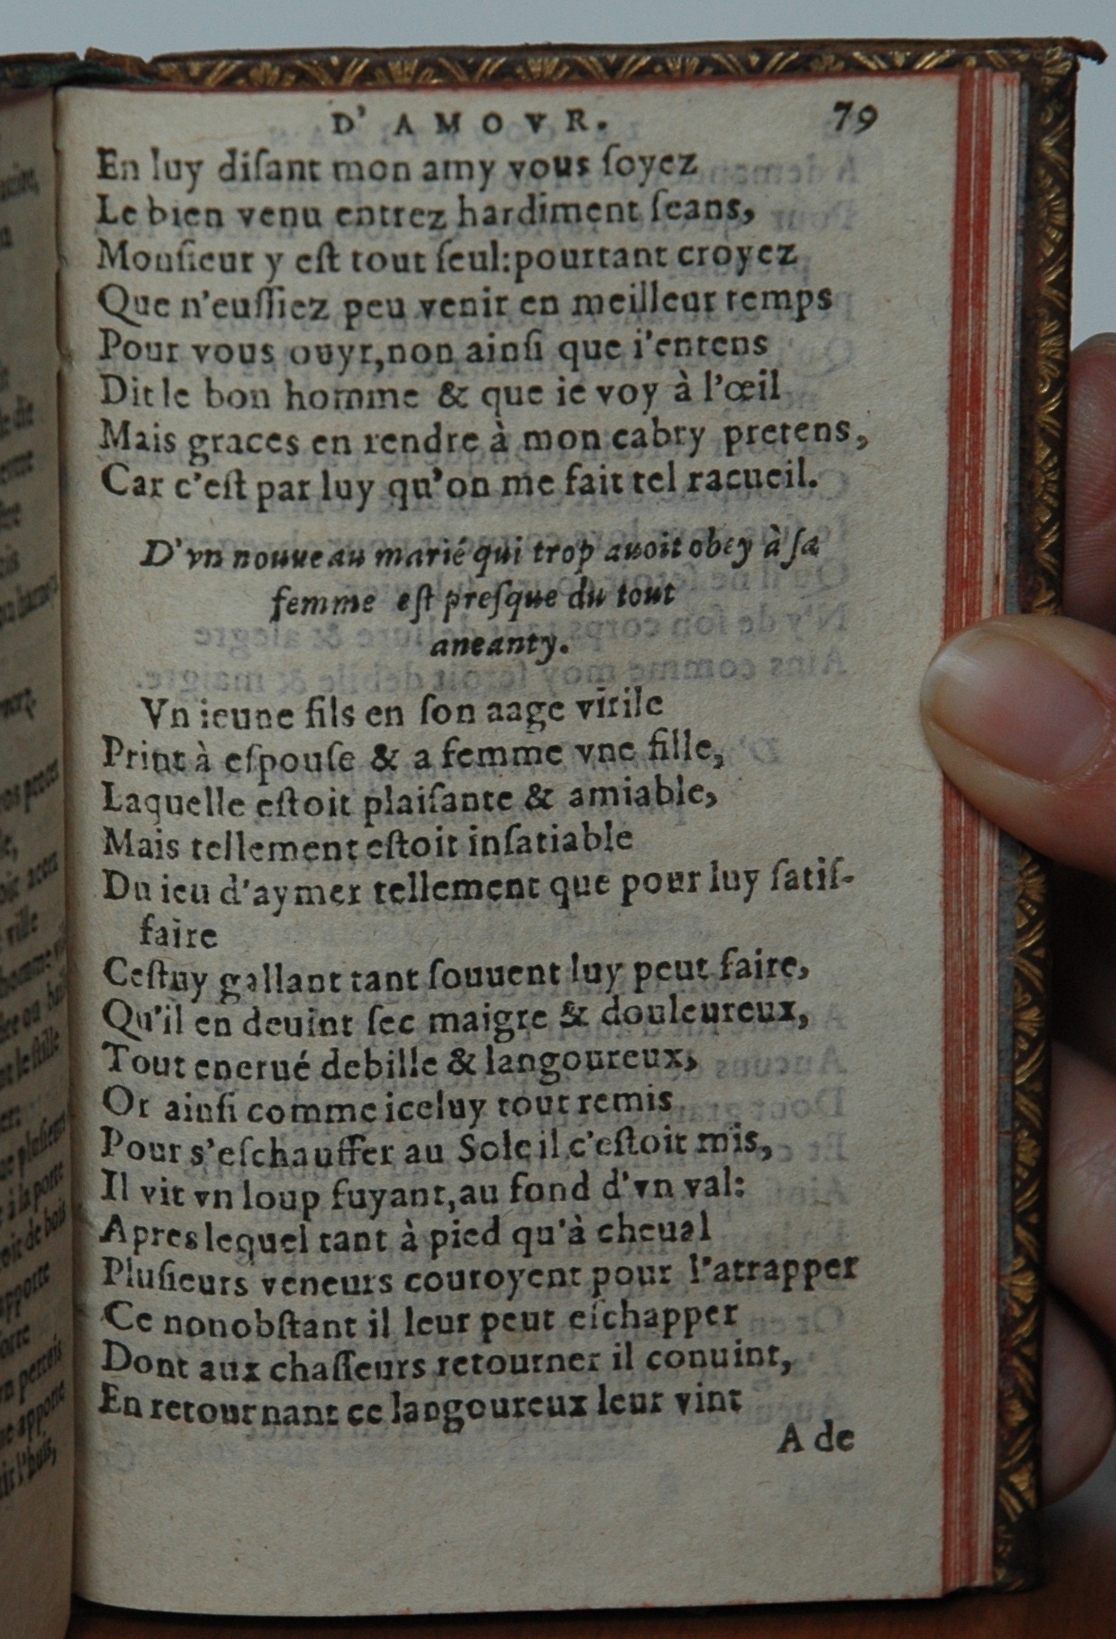 D' AMOVR. 79
En luy diſant mon amy vous ſoyez
Le bien venu entrez hardiment ſeans,
Monſieur y eſt tout ſeul:pourtant croyez
Que n'euſſiez peu venir en meilleur temps
Pour vous ouyr,non ainſi que i'entens
Dit le bon homme & que ie voy à l'œil
Mais graces en rendre à mon cabry pretens,
Car c'eſt par luy qu'on me fait tel racueil.
D'vn nouueau marié qui trop auoit obey à ſa
femme eſt preſque du tout
aneanty.
Vn ieune fils en ſon aage virile
Print à eſpouſe & a femme vne fille,
Laquelle eſtoit plaiſante & amiable,
Mais tellement eſtoit inſatiable
Du ieu d'aymer tellement que pour luy ſatiſ-
faire
Ceſtuy gallant tant ſouuent luy peut faire,
Qu'il en deuint ſec maigre & douleureux,
Tout enerué debille & langoureux,
Or ainſi comme iceluy tout remis
Pour s'eſchauffer au Soleil c'eſtoit mis,
Il vit vn loup fuyant,au fond d'vn val:
Apres lequel tant à pied qu'à cheual
Pluſieurs veneurs couroyent pour l'atrapper
Ce nonobſtant il leur peut eſchapper
Dont aux chaſſeurs retourner il conuint,
En retournant ce langoureux leur vint
A de